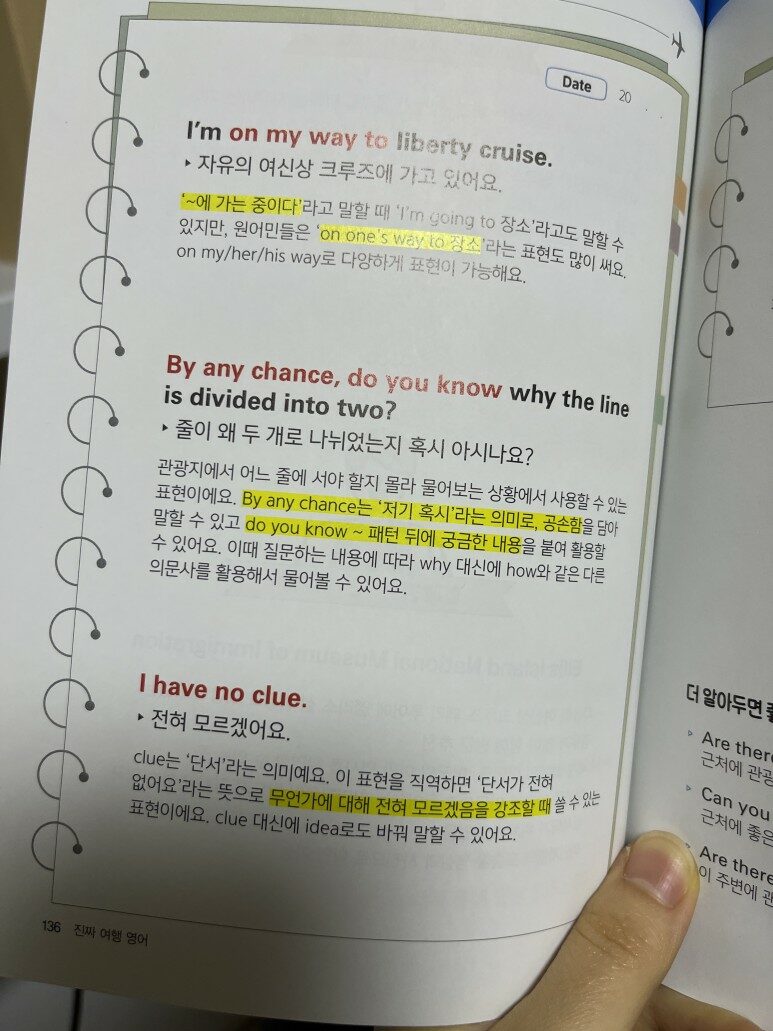 Date 20 . .
I'm on my way to liberty cruise.
▸ 자유의 여신상 크루즈에 가고 있어요.
'~에 가는 중이다'라고 말할 때 'I'm going to 장소'라고도 말할 수
있지만, 원어민들은 'on one's way to 장소'라는 표현도 많이 써요.
on my/her/his way로 다양하게 표현이 가능해요.
By any chance, do you know why the line
is divided into two?
▸ 줄이 왜 두 개로 나뉘었는지 혹시 아시나요?
관광지에서 어느 줄에 서야 할지 몰라 물어보는 상황에서 사용할 수 있는
표현이에요. By any chance는 '저기 혹시'라는 의미로, 공손함을 담아
말할 수 있고 do you know ~ 패턴 뒤에 궁금한 내용을 붙여 활용할
수 있어요. 이때 질문하는 내용에 따라 why 대신에 how와 같은 다른
의문사를 활용해서 물어볼 수 있어요.
I have no clue.
▸ 전혀 모르겠어요.
clue는 '단서'라는 의미예요. 이 표현을 직역하면 '단서가 전혀
없어요'라는 뜻으로 무언가에 대해 전혀 모르겠음을 강조할 때 쓸 수 있는
표현이에요. clue 대신에 idea로도 바꿔 말할 수 있어요.
136 진짜 여행 영어
더 알아두면
▹ Are there
근처에
▹ Can you
근처에 좋은
Are there
이 주변에